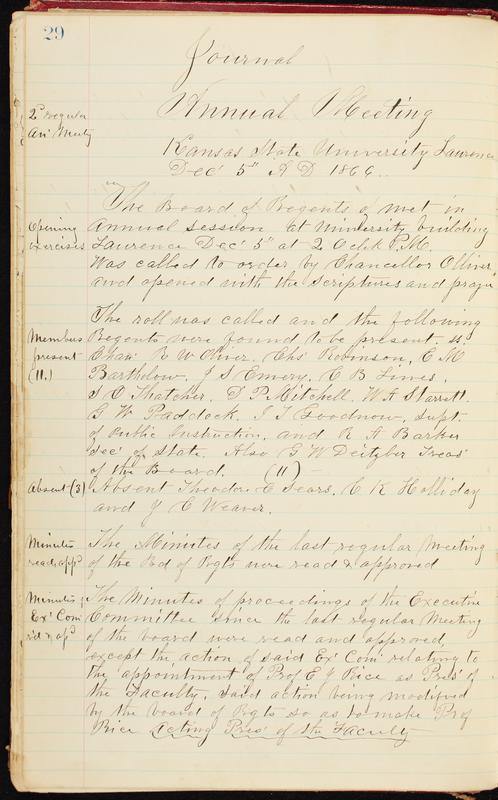 29
Journal
Annual Meeting
2d regular
An' Meetg
Kansas State University Lawrence
Dec' 5" A D 1866.
The Board of Regents of met in
Opening
exercises
annual session at University building
Lawrence Dec' 5" at 2 Oclk P.M.
Was called to order by Chancellor Olliver
and opened with the scriptures and prayr
The roll was called and the following
Members
present
(11.)
Regents were found to be present,
Chan' R W Oliver. Chs Robinson, C M
Bartholow, J S Emery, C B Lines,
S O Thatcher. D P Mitchell. W A Starrett.
G W Paddock. I T Goodnow, Supt.
of Public Instruction, and R A Barker
Sec' of State. Also G W Deitzler Treas'
of the Board. (11) —
Absent (3)
Absent Theodore C Sears. C K Holliday
and J C Weaver.
Minutes
read, app'd
The Minutes of the last regular Meeting
of the Bd of Rgts were read & approved
Minutes of
Ex' Com
r'd & ap'd
The Minutes of proceedings of the Executive
Committee since the last regular Meeting
of the board were read and approved,
except the action of said Ex' Com' relating to
the appointment of Prof E J Rice as Pres' of
the Faculty, said action being modified
by the board of Rgts so as to make Prof
Rice acting Pres' of the Faculty